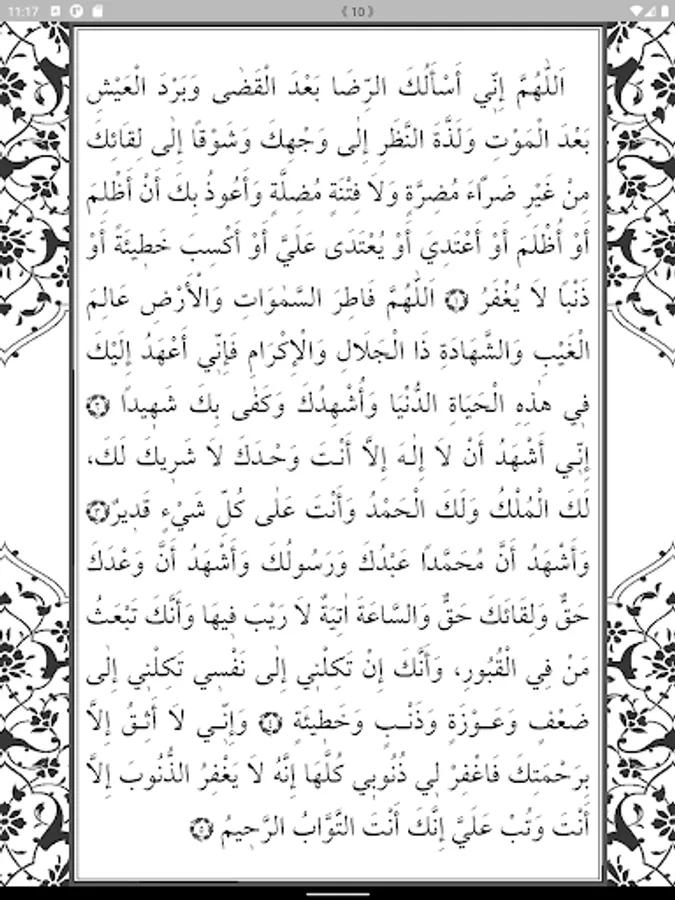 11:17
《 10 》
اَللّٰهُمَّ إِنِّي أَسْأَلُكَ الرِّضَا بَعْدَ الْقَضٰى وَبَرْدَ الْعَيْشِ
بَعْدَ الْمَوْتِ وَلَذَّةَ النَّظَرِ إِلٰى وَجْهِكَ وَشَوْقًا إِلٰى لِقَائِكَ
مِنْ غَيْرِ ضَرَّاءَ مُضِرَّةٍ وَلَا فِتْنَةٍ مُضِلَّةٍ وَأَعُوذُ بِكَ أَنْ أَظْلِمَ
أَوْ أُظْلَمَ أَوْ أَعْتَدِيَ أَوْ يُعْتَدَى عَلَيَّ أَوْ أَكْسِبَ خَطِيئَةً أَوْ
ذَنْبًا لَا يُغْفَرُ ۝١ اَللّٰهُمَّ فَاطِرَ السَّمٰوَاتِ وَالْأَرْضِ عَالِمَ
الْغَيْبِ وَالشَّهَادَةِ ذَا الْجَلَالِ وَالْإِكْرَامِ فَإِنِّي أَعْهَدُ إِلَيْكَ
فِي هٰذِهِ الْحَيَاةِ الدُّنْيَا وَأُشْهِدُكَ وَكَفٰى بِكَ شَهِيدًا ۝٢
إِنِّي أَشْهَدُ أَنْ لَا إِلٰهَ إِلَّا أَنْتَ وَحْدَكَ لَا شَرِيكَ لَكَ،
لَكَ الْمُلْكُ وَلَكَ الْحَمْدُ وَأَنْتَ عَلٰى كُلِّ شَيْءٍ قَدِيرٌ ۝٣
وَأَشْهَدُ أَنَّ مُحَمَّدًا عَبْدُكَ وَرَسُولُكَ وَأَشْهَدُ أَنَّ وَعْدَكَ
حَقٌّ وَلِقَائَكَ حَقٌّ وَالسَّاعَةَ اٰتِيَةٌ لَا رَيْبَ فِيهَا وَأَنَّكَ تَبْعَثُ
مَنْ فِي الْقُبُورِ، وَأَنَّكَ إِنْ تَكِلْنِي إِلٰى نَفْسِي تَكِلْنِي إِلٰى
ضَعْفٍ وَعَـوْزَةٍ وَذَنْـبٍ وَخَطِيئَةٍ ۝٤ وَإِنِّـي لَا أَثِـقُ إِلَّا
بِرَحْمَتِكَ فَاغْفِرْ لِي ذُنُوبِي كُلَّهَا إِنَّهُ لَا يَغْفِرُ الذُّنُوبَ إِلَّا
أَنْتَ وَتُبْ عَلَيَّ إِنَّكَ أَنْتَ التَّوَّابُ الرَّحِيمُ ۝٥